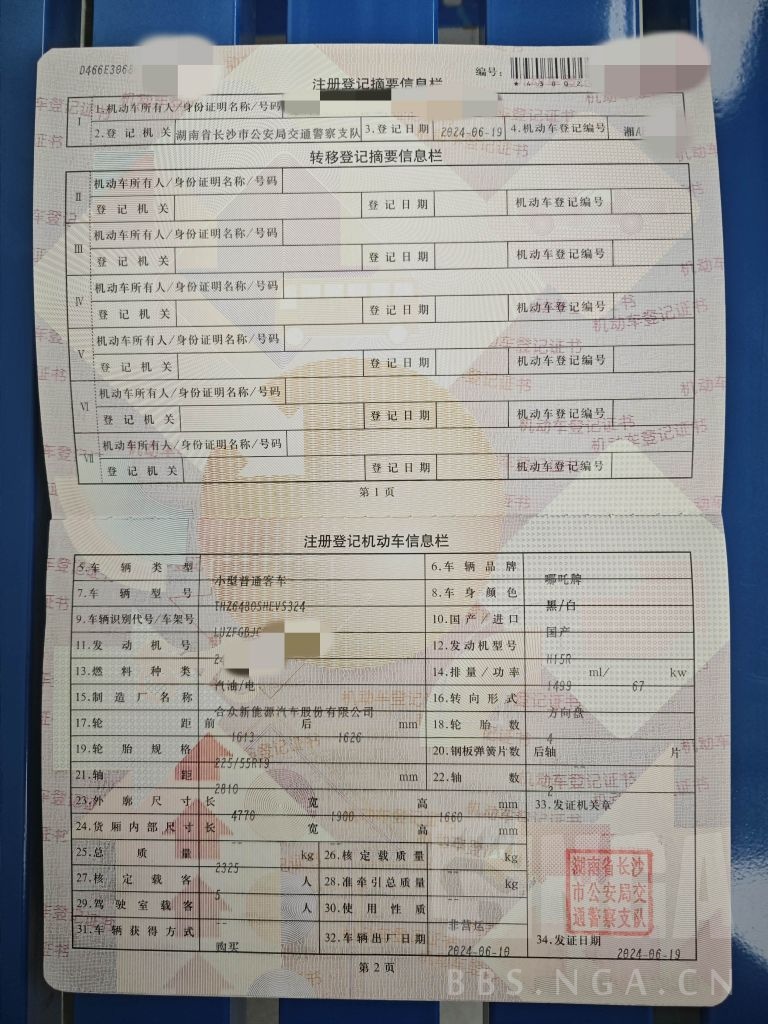 D466E3068
注册登记摘要信息栏
编号:
*43002
I 1.机动车所有人/身份证明名称/号码
2.登记机关 湖南省长沙市公安局交通警察支队 3.登记日期 2024-06-19 4.机动车登记编号 湘A
转移登记摘要信息栏
II 机动车所有人/身份证明名称/号码
登记机关 登记日期 机动车登记编号
III 机动车所有人/身份证明名称/号码
登记机关 登记日期 机动车登记编号
IV 机动车所有人/身份证明名称/号码
登记机关 登记日期 机动车登记编号
V 机动车所有人/身份证明名称/号码
登记机关 登记日期 机动车登记编号
VI 机动车所有人/身份证明名称/号码
登记机关 登记日期 机动车登记编号
VII 机动车所有人/身份证明名称/号码
登记机关 登记日期 机动车登记编号
第1页
注册登记机动车信息栏
5.车辆类型 小型普通客车 6.车辆品牌 哪吒牌
7.车辆型号 THZ6480SHEVS324 8.车身颜色 黑/白
9.车辆识别代号/车架号 LUZFGBJC 10.国产/进口 国产
11.发动机号 24 12.发动机型号 H15R
13.燃料种类 汽油/电 14.排量/功率 1499 ml/ 67 kw
15.制造厂名称 合众新能源汽车股份有限公司 16.转向形式 方向盘
17.轮距 前 1613 后 1626 mm 18.轮胎数 4
19.轮胎规格 225/55R19 20.钢板弹簧片数 后轴 -- 片
21.轴距 2810 mm 22.轴数 2
23.外廓尺寸 长 4770 宽 1900 高 1660 mm 33.发证机关章
24.货厢内部尺寸 长 -- 宽 -- 高 -- mm
25.总质量 2325 kg 26.核定载质量 -- kg
27.核定载客 5 人 28.准牵引总质量 -- kg
29.驾驶室载客 -- 人 30.使用性质 非营运
31.车辆获得方式 购买 32.车辆出厂日期 2024-06-10 34.发证日期 2024-06-19
湖南省长沙
市公安局交
通警察支队
第2页
BBS.NGA.CN